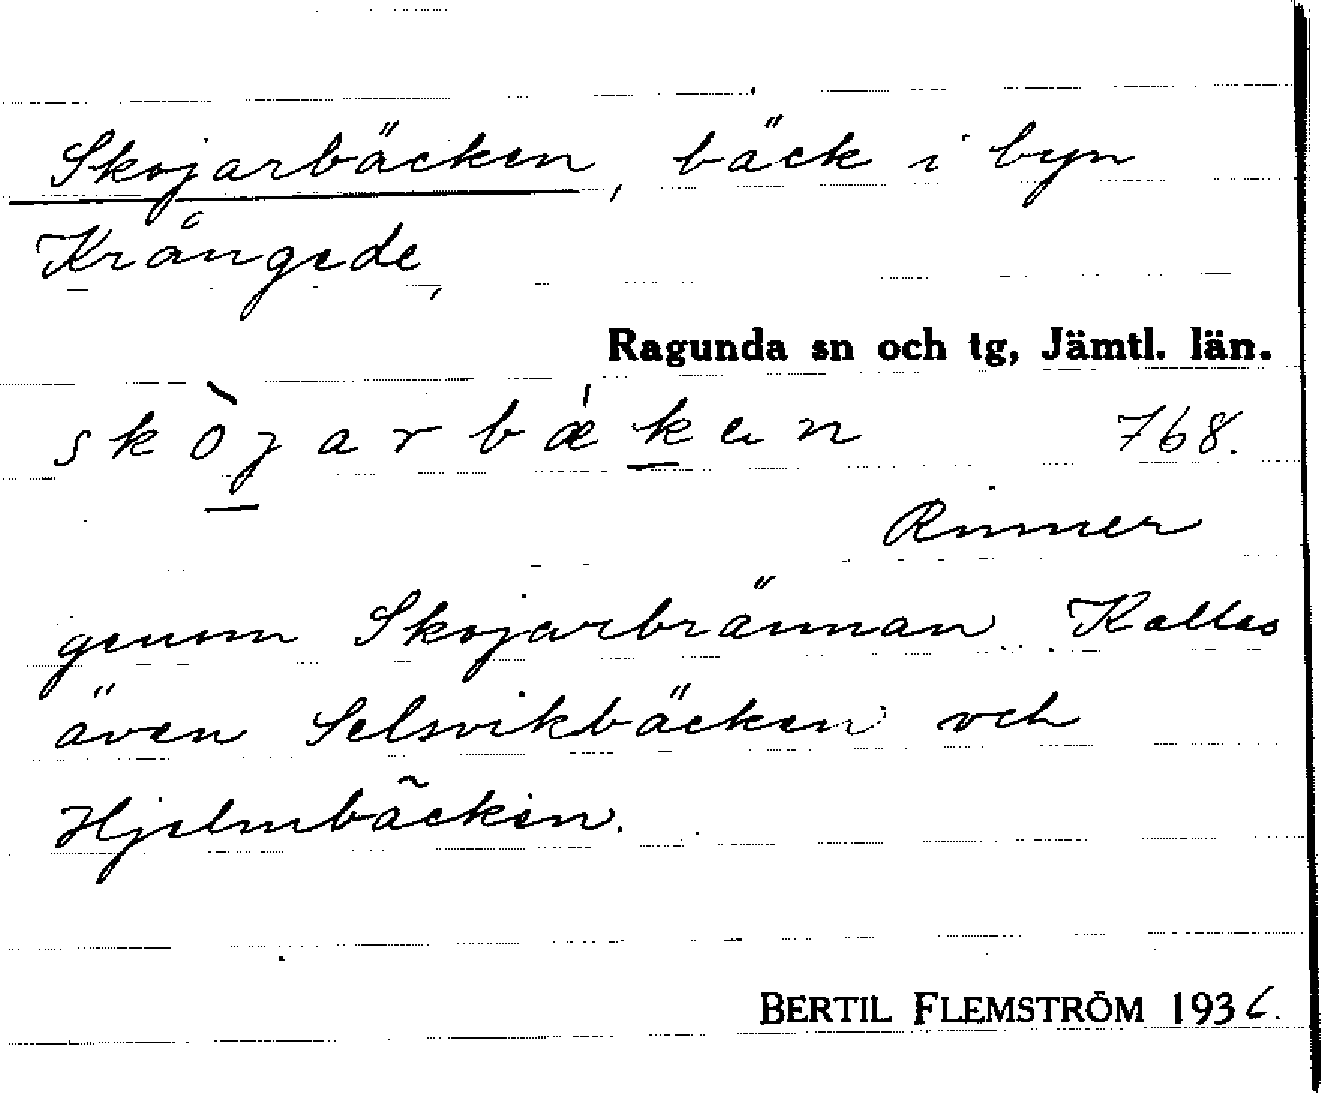 Skojarbäcken, bäck i byn
Krångede,
Ragunda sn och tg, Jämtl. län.
skòjarbǽken 768.
Rinner
genom Skojarbrännan. Kallas
även Selsvikbäcken och
Hjelmbäcken.
BERTIL FLEMSTRÖM 1936.